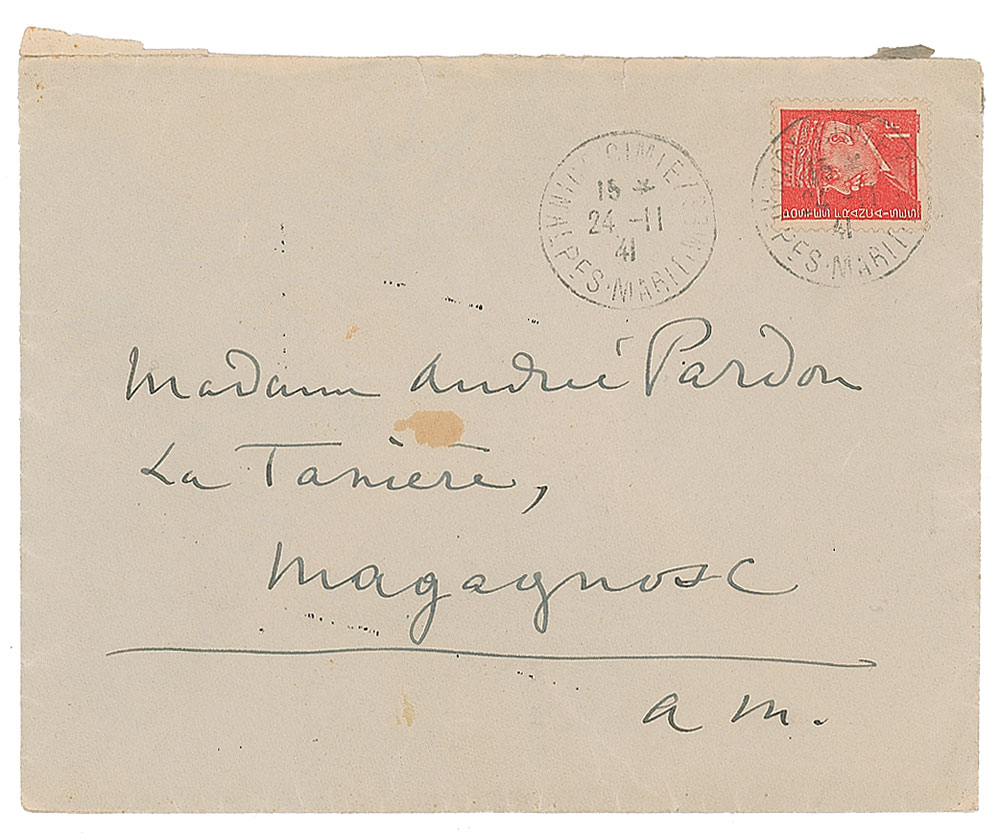 NICE CIMIEZ
15 *
24 - 11
41
ALPES-MARITIMES
1F
POSTES FRANÇAISES
15 *
24 - 11
41
PES-MARIT
Madame André Pardon
La Tanière,
Magagnosc
a m.